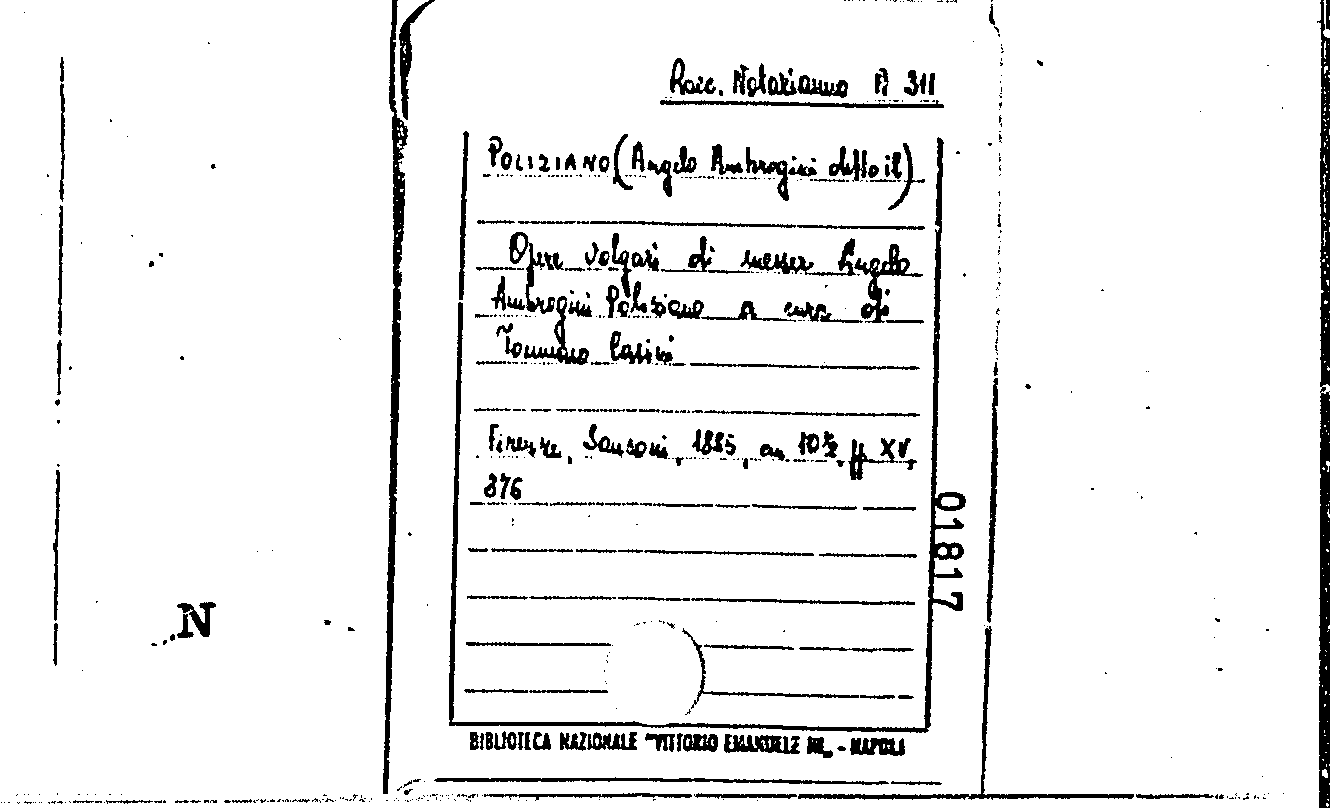 Racc. Notarianno A 311
POLIZIANO (Angelo Ambrogini detto il)
Opere volgari di messer Angelo
Ambrogini Poliziano a cura di
Tommaso Casini
Firenze, Sansoni, 1885, cm 10½, pp XV,
376
01817
N
BIBLIOTECA NAZIONALE "VITTORIO EMANUELE III„ - NAPOLI